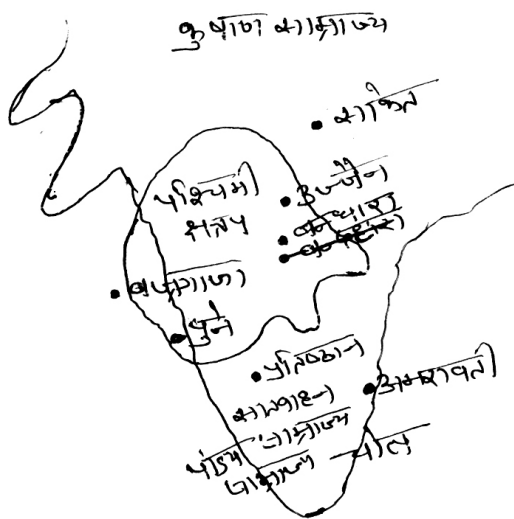 कुषाण साम्राज्य
साकेत
पश्चिमी
क्षत्रप
उज्जैन
पुणे
प्रतिष्ठान
सातवाहन
साम्राज्य
अमरावती
पांड्य
साम्राज्य
चोल